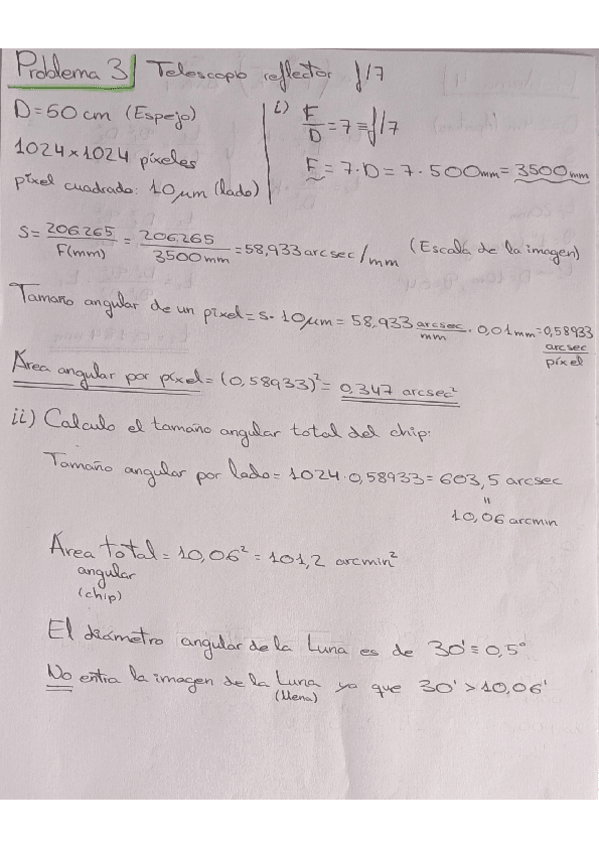 Problema 3 Telescopio reflector f/7
D = 50 cm (Espejo)
1024 x 1024 píxeles
píxel cuadrado: 10 μm (lado)
i) F/D = 7 ≡ f/7
F = 7 · D = 7 · 500mm = 3500 mm
S = 206265/F(mm) = 206265/3500mm = 58,933 arcsec/mm (Escala de la imagen)
Tamaño angular de un píxel = s · 10μm = 58,933 arcsec/mm · 0,01mm = 0,58933 arcsec/píxel
Área angular por píxel = (0,58933)² = 0,347 arcsec²
ii) Calculo el tamaño angular total del chip:
Tamaño angular por lado = 1024 · 0,58933 = 603,5 arcsec
=
10,06 arcmin
Área total = 10,06² = 101,2 arcmin²
angular
(chip)
El diámetro angular de la Luna es de 30' ≡ 0,5°
No entra la imagen de la Luna ya que 30' > 10,06'
(llena)